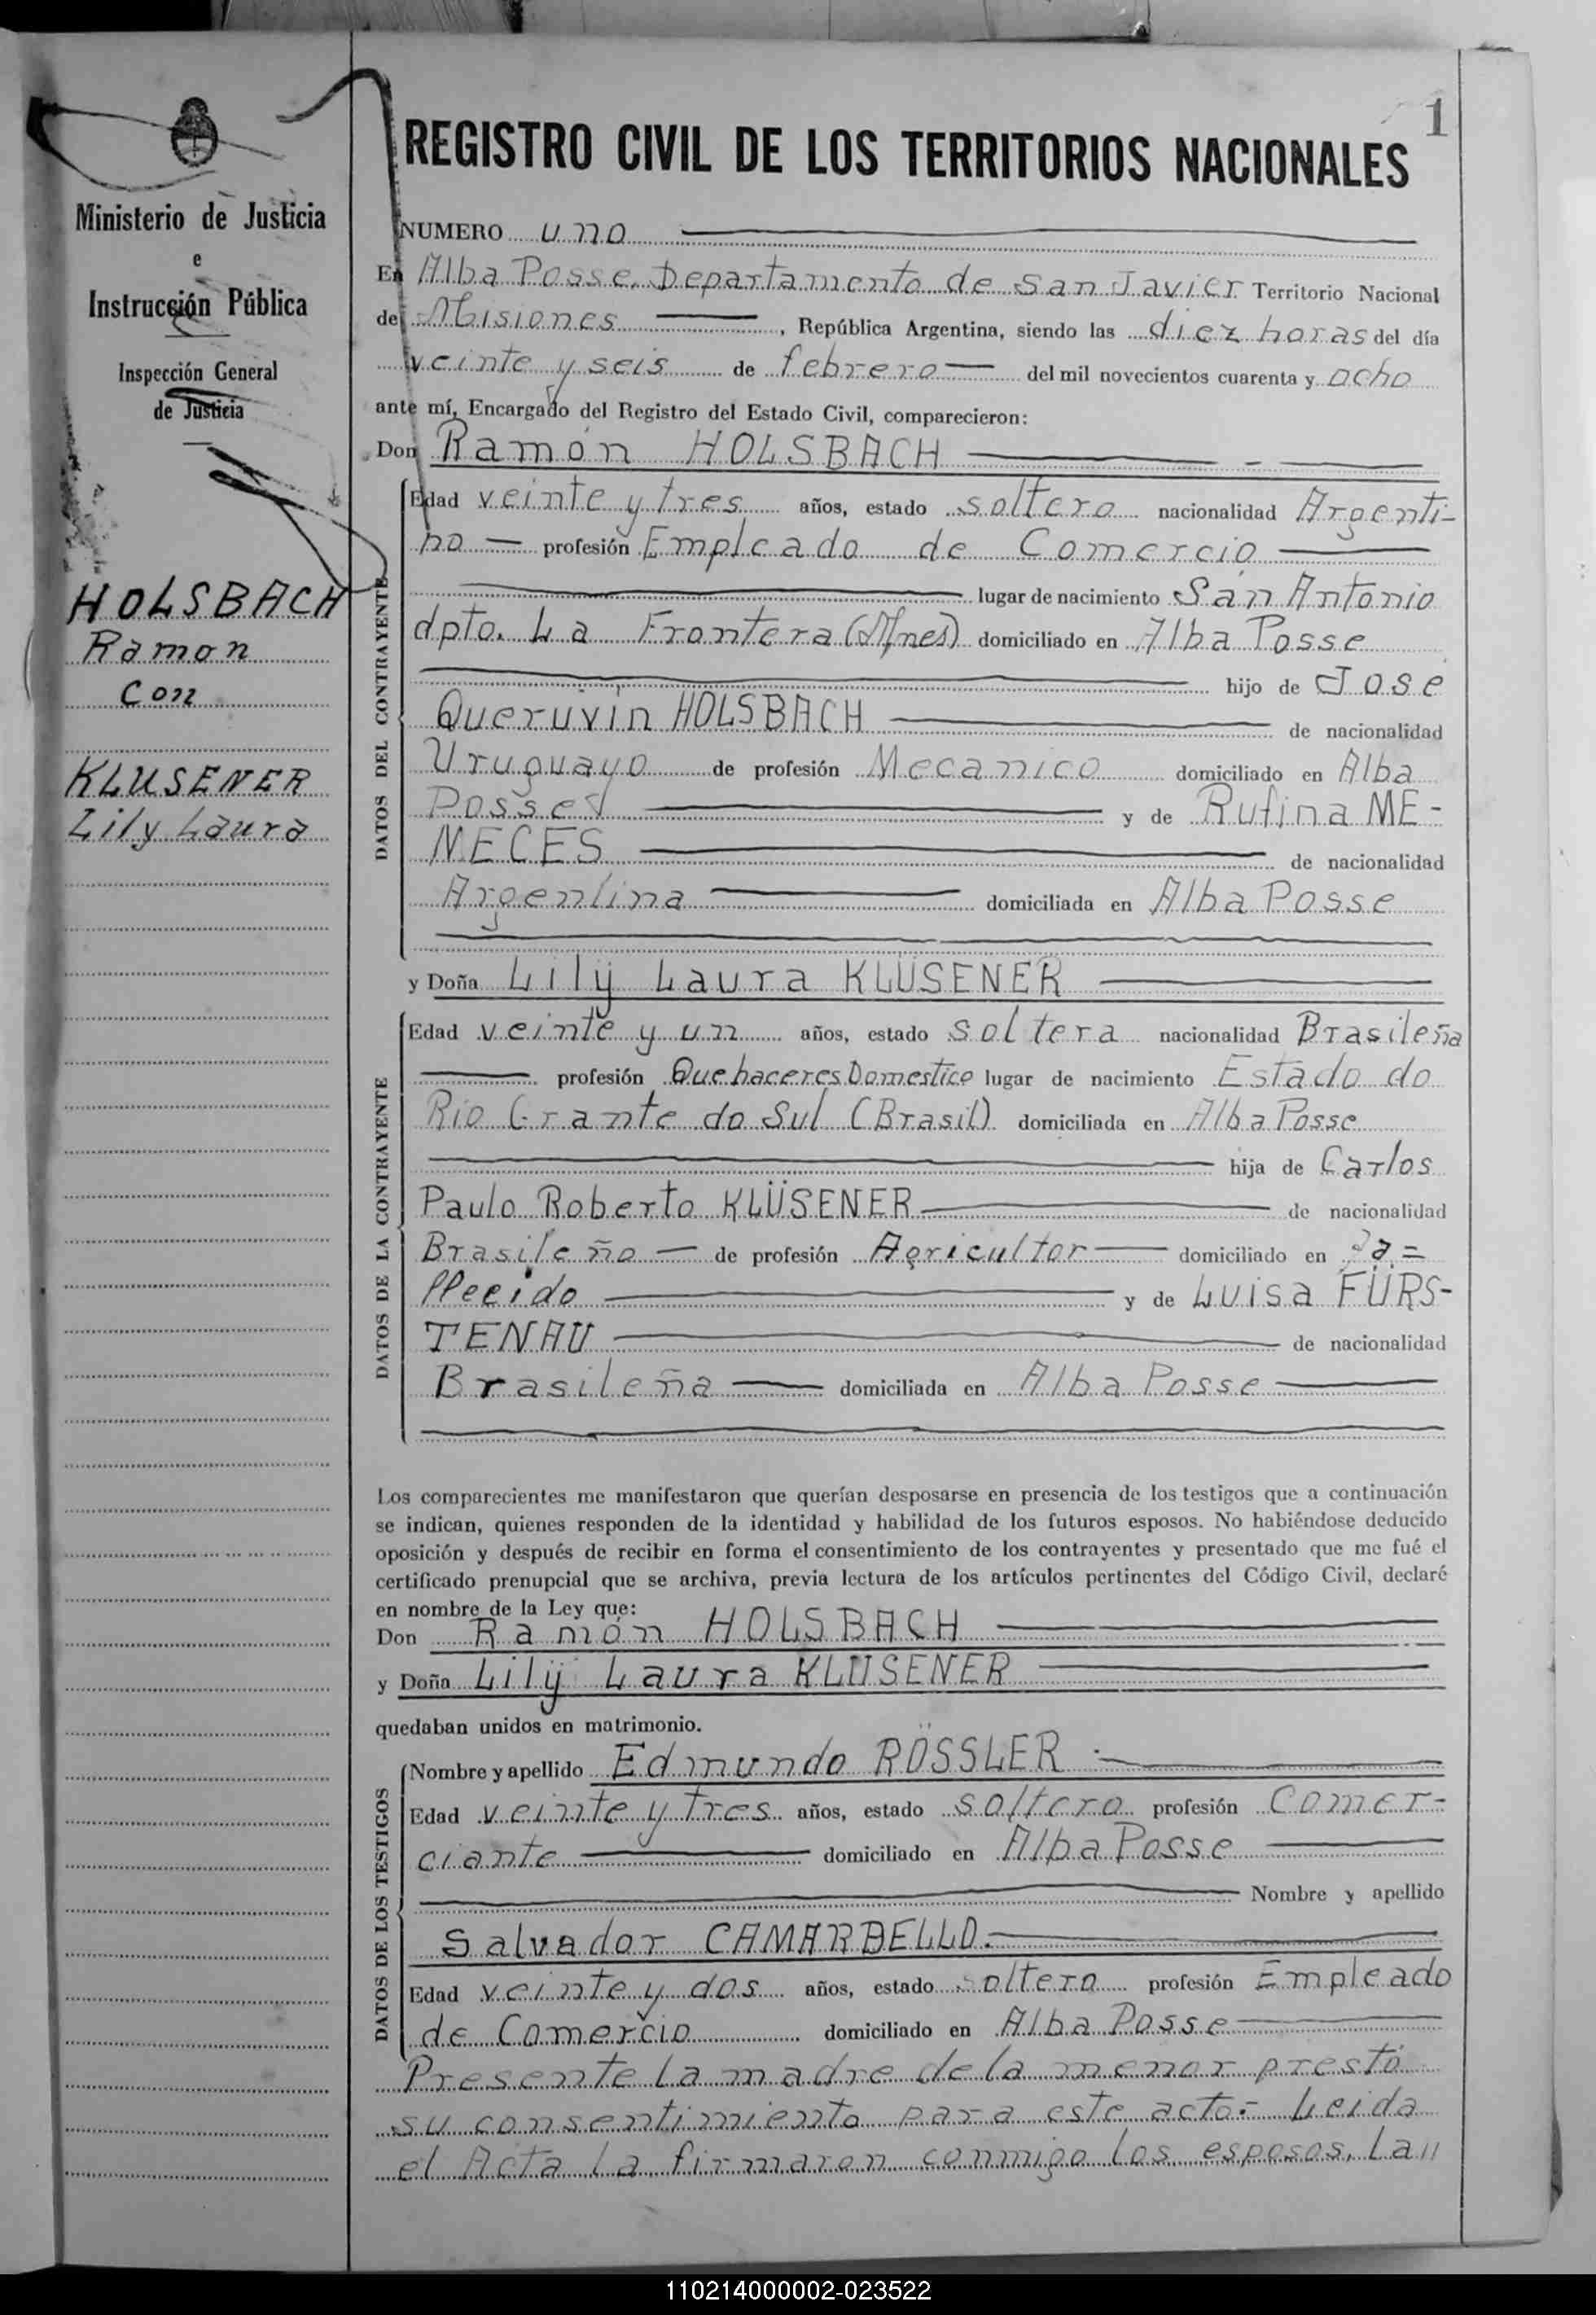 1
Ministerio de Justicia
e
Instrucción Pública
Inspección General
de Justicia
HOLSBACH
Ramon
con
KLUSENER
Lily Laura
REGISTRO CIVIL DE LOS TERRITORIOS NACIONALES
NUMERO uno
En Alba Posse, Departamento de San Javier Territorio Nacional
de Misiones, República Argentina, siendo las diez horas del día
veinte y seis de febrero del mil novecientos cuarenta y ocho
ante mí, Encargado del Registro del Estado Civil, comparecieron:
Don Ramón HOLSBACH
DATOS DEL CONTRAYENTE
Edad veinte y tres años, estado soltero nacionalidad Argenti-
no profesión Empleado de Comercio
lugar de nacimiento San Antonio
dpto. La Frontera (Mnes) domiciliado en Alba Posse
hijo de Jose
Queruvin HOLSBACH de nacionalidad
Uruguayo de profesión Mecanico domiciliado en Alba
Posse y de Rufina ME-
NECES de nacionalidad
Argentina domiciliada en Alba Posse
y Doña Lily Laura KLÜSENER
DATOS DE LA CONTRAYENTE
Edad veinte y un años, estado soltera nacionalidad Brasileña
profesión Quehaceres Domestico lugar de nacimiento Estado do
Rio Grante do Sul (Brasil) domiciliada en Alba Posse
hija de Carlos
Paulo Roberto KLÜSENER de nacionalidad
Brasileño de profesión Agricultor domiciliado en
y de Luisa FÜRS-
TENAU de nacionalidad
Brasileña domiciliada en Alba Posse
Los comparecientes me manifestaron que querían desposarse en presencia de los testigos que a continuación
se indican, quienes responden de la identidad y habilidad de los futuros esposos. No habiéndose deducido
oposición y después de recibir en forma el consentimiento de los contrayentes y presentado que me fué el
certificado prenupcial que se archiva, previa lectura de los artículos pertinentes del Código Civil, declaré
en nombre de la Ley que:
Don Ramón HOLSBACH
y Doña Lily Laura KLÜSENER
quedaban unidos en matrimonio.
DATOS DE LOS TESTIGOS
Nombre y apellido Edmundo RÖSSLER
Edad veinte y tres años, estado soltero profesión Comer-
ciante domiciliado en Alba Posse
Nombre y apellido
Salvador CAMARBELLO.
Edad veinte y dos años, estado soltero profesión Empleado
de Comercio domiciliado en Alba Posse
Presente la madre de la menor prestó
su consentimiento para este acto.- Leida
el Acta la firmaron conmigo los esposos, la //
110214000002-023522